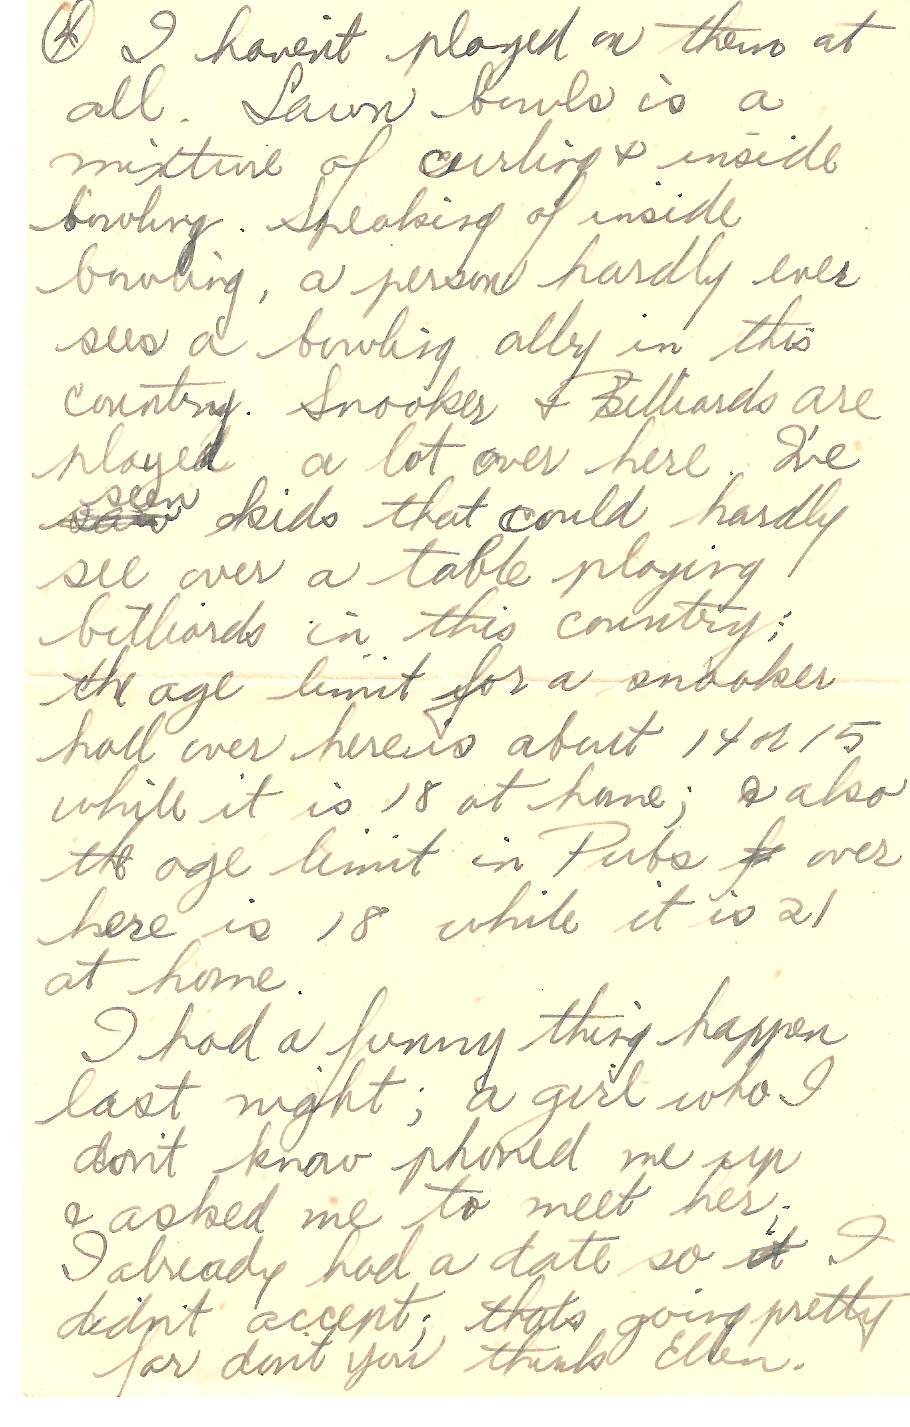 ④ I haven't played on them at
all. Lawn bowls is a
mixture of curling & inside
bowling. Speaking of inside
bowling, a person hardly ever
sees a bowling ally in this
country. Snooker & Billiards are
played a lot over here. I've
seen kids that could hardly
see over a table playing
billiards in this country;
the age limit for a snooker
hall over here is about 14 or 15
while it is 18 at home; & also
the age limit in Pubs over
here is 18 while it is 21
at home.
I had a funny thing happen
last night; a girl who I
don't know phoned me up
& asked me to meet her;
I already had a date so I
didn't accept; thats going pretty
far don't you think Ellen.